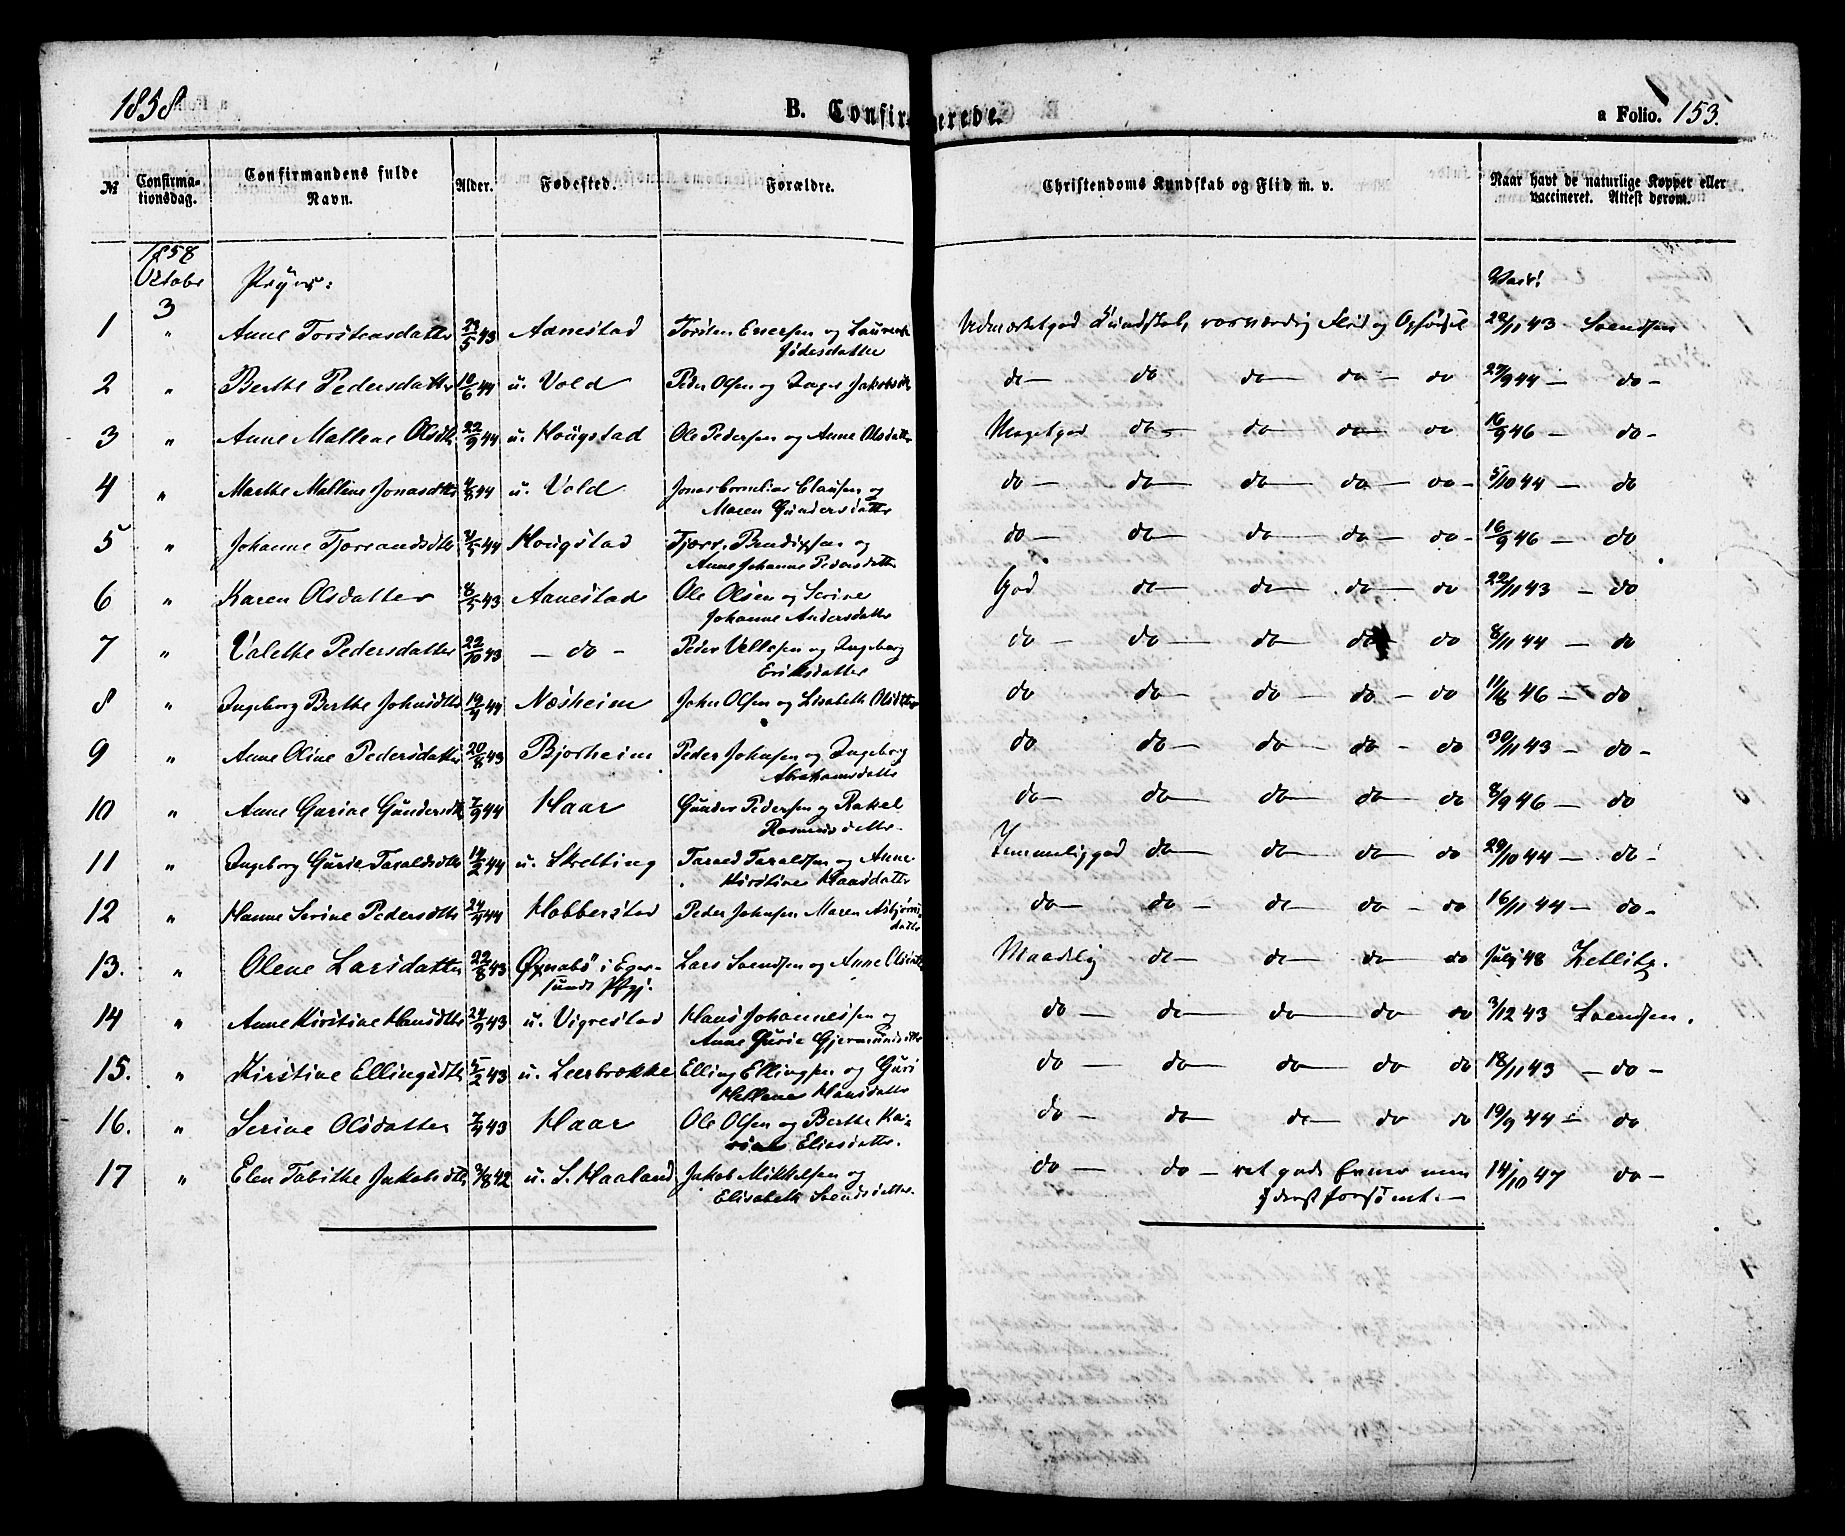 1858
B. Confirmerede.
a Folio. 153.
№ Confirmationsdag. Confirmandens fulde Navn. Alder. Fødested. Forældre. Christendoms Kundskab og Flid m. v. Naar havt de naturlige Kopper eller vaccineret. Attest derom.
1858
October
3 Piger: Vacc:
1 " Anne Torstensdatter 23/5 43 Aanestad Torsten Enersen og Udmærketgod Kundskab, rosværdig Flid og Opførsel 22/11 43 Svendsen
2 " Berthe Pedersdatter 10/6 44 u. Vold Peder Olsen og Inger Jakobsdtr do — do do — do — do 23/9 44 — do —
3 " Anne Mallene Olsdtr 22/9 44 u. Hougstad Ole Pedersen og Anne Olsdatter Megetgod do — do — do — do 16/9 46 — do —
4 " Marthe Malline Jonasdtr 44 u. Vold Jonas Cornelius Clausen og
Maren Gundersdatter do — do — do — do — do — 5/10 44 — do
5 " Johanne Tjorandsdtr 44 Hougstad og
Anne Johanne Pedersdatter do — do — do — do — do — 16/9 46 — do
6 " Karen Olsdatter 8/5 43 Aanestad Ole Olsen og Serine
Johanne Andersdatter God do — do — do — do 22/11 43 — do
7 " Valethe Pedersdatter 22/10 43 — do — Peder Vellesen og Ingeborg
Eriksdatter do — do — do — do do 8/11 44 — do
8 " Ingeborg Berthe Johnsdtr 44 Næsheim John Olsen og Lisabeth Olsdatter do do — do — do — do 46 — do
9 " Anne Oline Pedersdatter 20/8 43 Bjorheim Peder Johnsen og Ingeborg
Abrahamsdatter do do — do — do — do 30/11 43 — do —
10 " Anne Gurine Gundersdtr 7/9 44 Haar Gunder Pedersen og Rakel
Rasmusdatter do — do — do — do do 8/9 46 — do
11 " Ingeborg Gurie Taraldsdtr 14/2 44 u. Skretting Tarald Taraldsen og Anne
Kirstine Hansdatter Temmeliggod do — do — do — do 29/10 44 — do
12 " Hanne Serine Pedersdtr 44 Hobberstad Peder Johnsen Maren Asbjørnsdatter do — do — do — do — do 16/11 44 — do —
13. " Olene Larsdatter 22/8 43 Øgnabø i Egersunds Pgj. Lars Svendsen og Anne Olsdtr Maadelig do — do — do — do July 48 Zetlitz.
14 " Anne Kirstine Hansdtr 24/9 43 u. Vigrestad Hans Johannessen og
Anne Gurie Gjermundsdtr do — do — do — do do 3/12 43 Svendsen.
15. " Kirstine Ellingsdtr 5/2 43 u. Leerbrekke Elling Ellingsen og Guri
Hellene Hansdatter do — do — do — do do 18/11 43 — do —
16. " Serine Olsdatter 43 Haar Ole Olsen og Berthe
Eliasdatter. do — do — do — do do 19/9 44 — do
17 " Elen Tabithe Jakobsdtr 3/8 42 u. S. Haaland Jakob Mikkelsen og
Elisabeth Svendsdatter. do — do — ret gode Evner men
yderst forsømt. — 14/10 47 do —